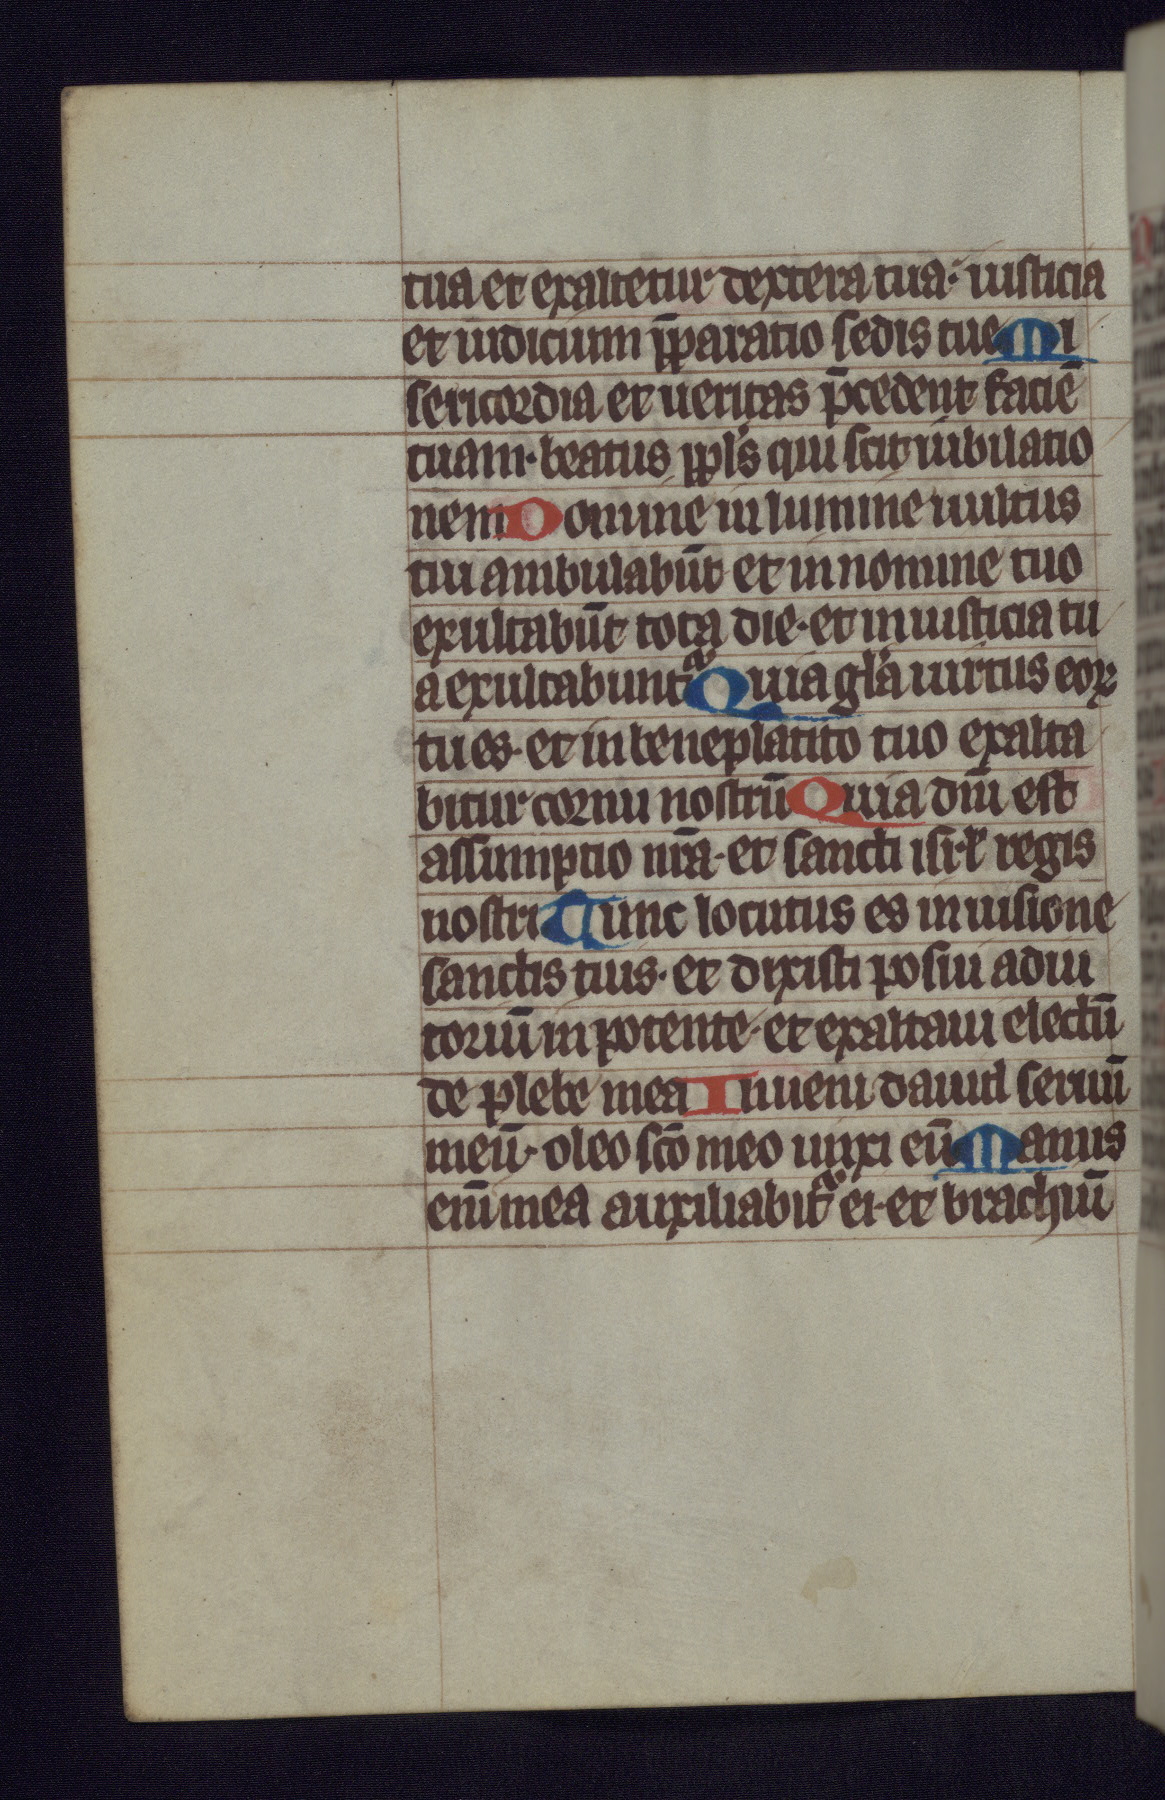 tua et exaltetur dextera tua· iusticia
et iudicium p̄paratio sedis tue Mi
sericordia et ueritas p̄cedent faciē
tuam· beatus ppl's qui scit iubilatio
nem Domine in lumine uultus
tui ambulabūt et in nomine tuo
exultabūt tota die· et in iusticia tu
a exultabunt Quia gl'a uirtus eoꝝ
tu es· et in beneplatito tuo exalta
bitur cornu nostrū Quia dn̄i est
assumptio nr̄a· et sancti isr̄l regis
nostri Tunc locutus es in uisione
sanctis tuis· et dixisti posui adiu
toriū in potente· et exaltaui electū
de plebe mea Inueni dauid seruū
meū· oleo sc̄o meo unxi eū Manus
eni̅ mea auxiliabit᷑ ei· et brachiū